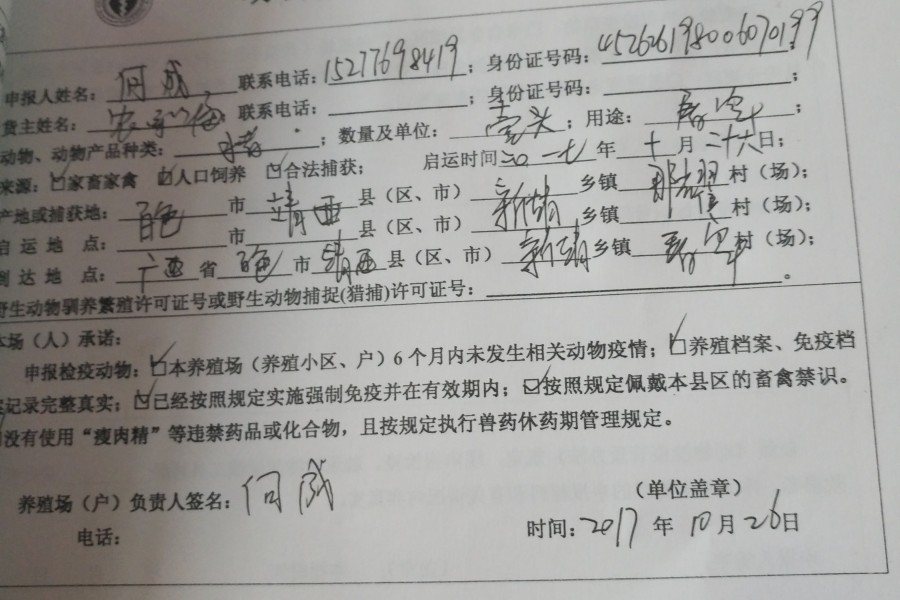 申报人姓名：何威 联系电话：15277698419；身份证号码：452626198006070199
货主姓名：农 联系电话： ；身份证号码： ；
动物、动物产品种类：猪；数量及单位：壹头；用途：屠宰；
来源：☑家畜家禽 ☑人口饲养 ☑合法捕获； 启运时间二〇一七年十月二十六日；
产地或捕获地：百色市靖西县（区、市）新靖乡镇 村（场）；
启运地点：百色市靖西县（区、市）新靖乡镇 村（场）；
到达地点：广西省百色市靖西县（区、市）新靖乡镇屠宰村（场）；
野生动物驯养繁殖许可证号或野生动物捕捉(猎捕)许可证号： 。
本场（人）承诺：
申报检疫动物：☑本养殖场（养殖小区、户）6个月内未发生相关动物疫情；☑养殖档案、免疫档
案记录完整真实；☑已经按照规定实施强制免疫并在有效期内；☑按照规定佩戴本县区的畜禽禁识。
没有使用“瘦肉精”等违禁药品或化合物，且按规定执行兽药休药期管理规定。
养殖场（户）负责人签名：何威 （单位盖章）
电话： 时间：2017年10月26日